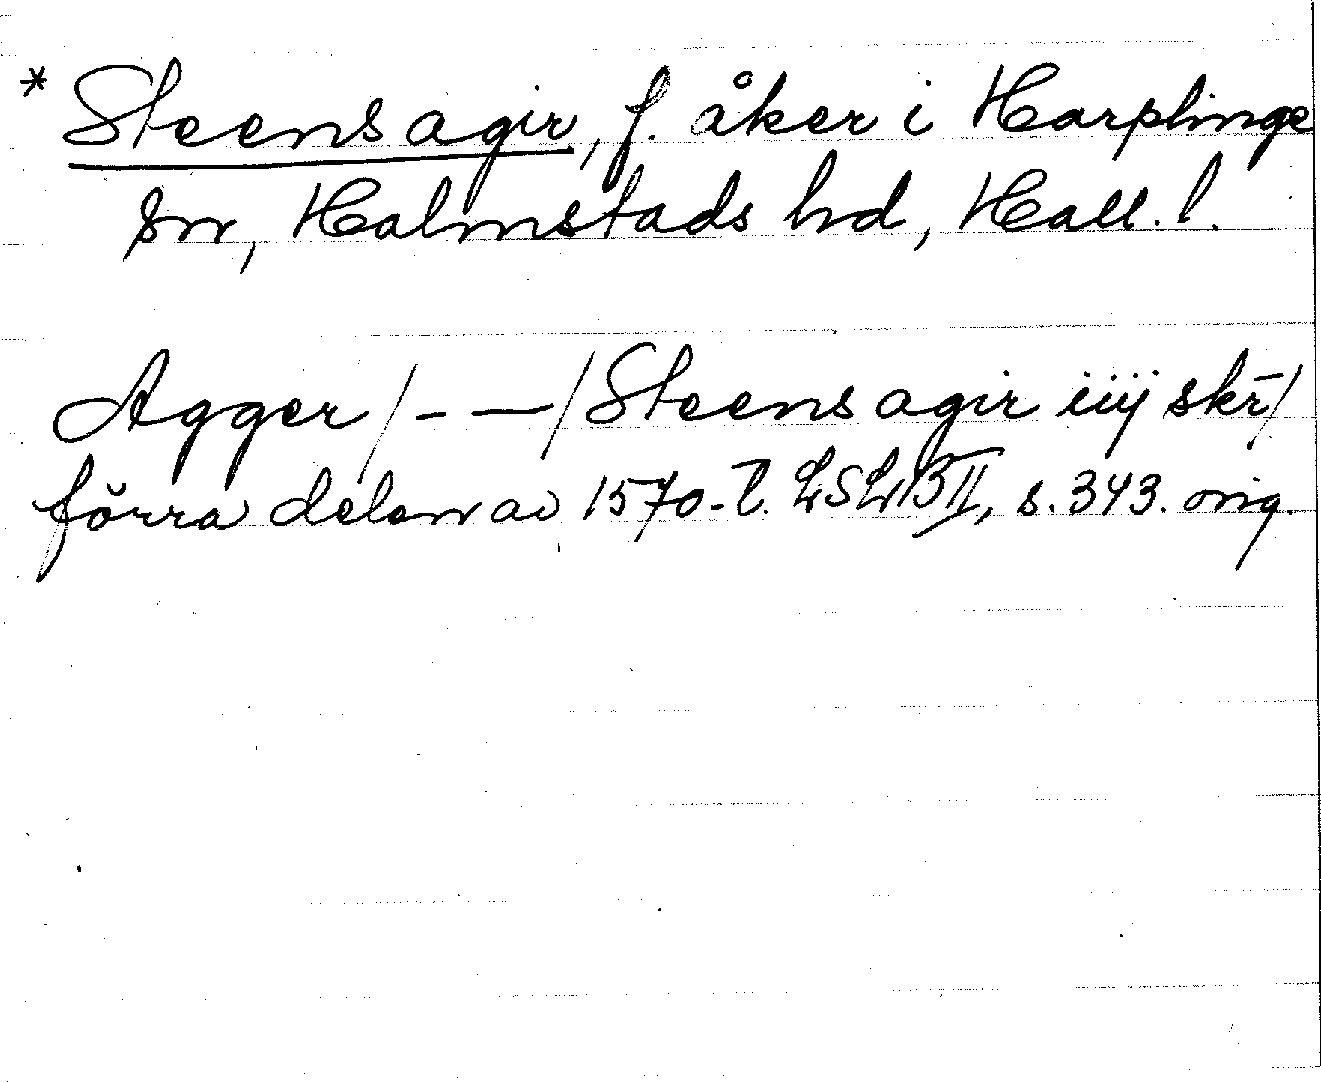 * Steens agir, f. åker i Harplinge
sn, Halmstads hd, Hall. l.
Agger /- — / Steens agir iiij skr̄ /
förra delen av 1570-t. LSLB II, s. 343. orig.